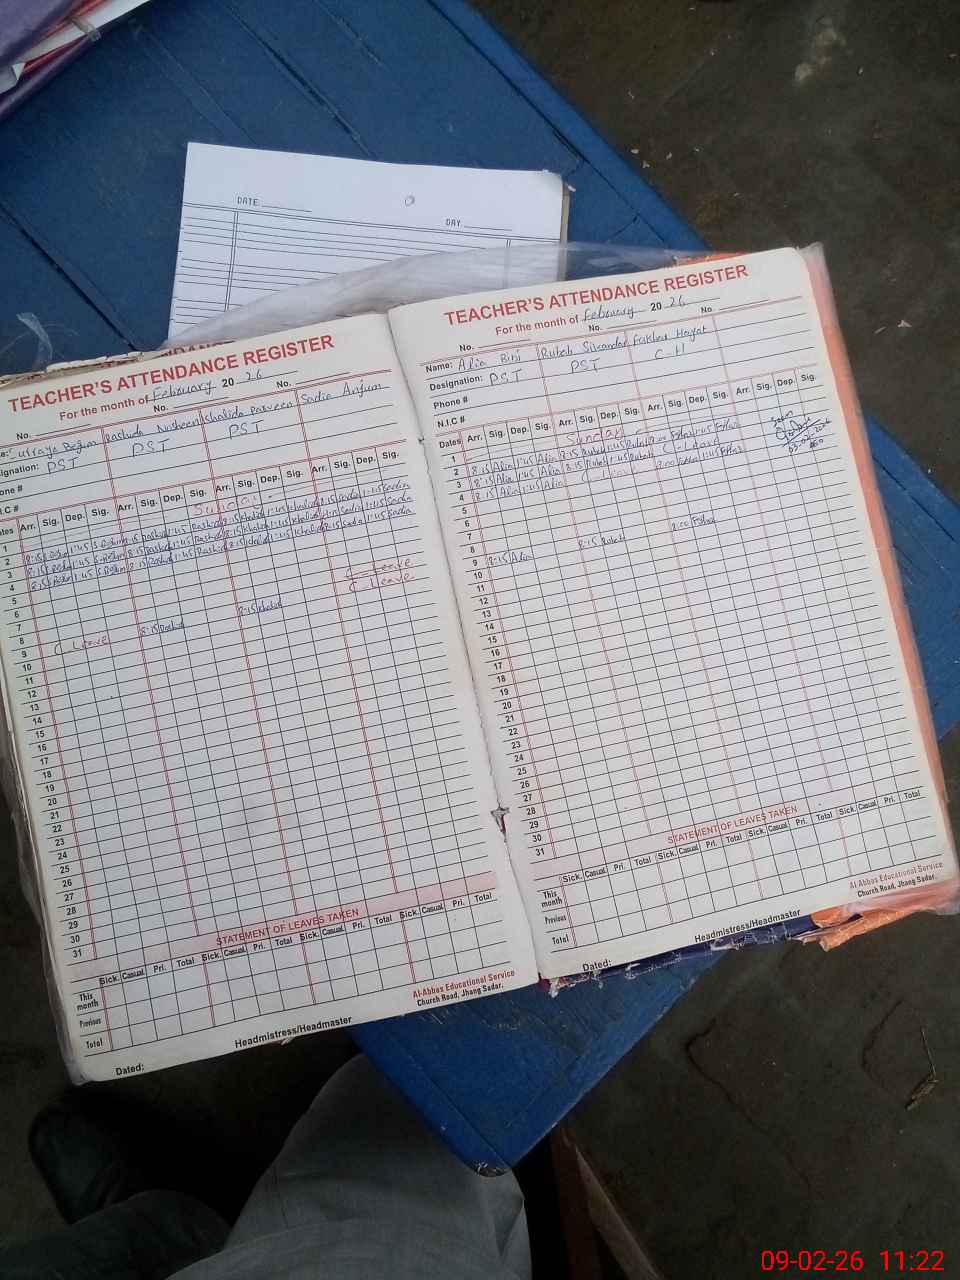 DATE
DAY
TEACHER'S ATTENDANCE REGISTER
For the month of February 20 26
No. No. No.
Surraya Begum Rashida Nosheen Khalida Parveen Sadia Anjum
signation: PST PST PST
one #
.I.C #
ates Arr. Sig. Dep. Sig. Arr. Sig. Dep. Sig. Arr. Sig. Dep. Sig. Arr. Sig. Dep. Sig.
1 Sunday
2 8:15 1:45 8:15 Rashida 1:45 Rashida 8:15 Khalida 1:45 Khalida 8:15 Sadia 1:45 Sadia
3 8:15 1:45 8:15 Rashida 1:45 Rashida 8:15 Khalida 1:45 Khalida Sadia 1:45 Sadia
4 8:15 1:45 8:15 Rashida 1:45 Rashida 8:15 Khalida 1:45 Khalida 8:15 Sadia 1:45 Sadia
5
6
7
8 C Leave
9 C Leave 8:15 Rashida 8:15 Khalida C Leave
10
11
12
13
14
15
16
17
18
19
20
21
22
23
24
25
26
27
28
29
30
31
STATEMENT OF LEAVES TAKEN
Sick. Casual Pri. Total Sick. Casual Pri. Total Sick. Casual Pri. Total Sick. Casual Pri. Total
This month
Previous
Total
Al-Abbas Educational Service
Church Road, Jhang Sadar.
Headmistress/Headmaster
Dated:
TEACHER'S ATTENDANCE REGISTER
For the month of February 20 26
No. No. No.
Name: Alia Bibi Rubab Sikandar Fakhar Hayat
Designation: PST PST C-H
Phone #
N.I.C #
Dates Arr. Sig. Dep. Sig. Arr. Sig. Dep. Sig. Arr. Sig. Dep. Sig. Arr. Sig. Dep. Sig.
1 Sunday
2 8:15 Alia 1:45 Alia 8:15 Rubab 1:45 Rubab 8:00 1:45
3 8:15 Alia 1:45 Alia 8:15 Rubab 1:45 Rubab C-Leave
4 8:15 Alia 1:45 Alia 8:00 1:45
5
6
7
8
9 8:15 Alia 8:15 Rubab 8:00
10
11
12
13
14
15
16
17
18
19
20
21
22
23
24
25
26
27
28
29
30
31
STATEMENT OF LEAVES TAKEN
Sick. Casual Pri. Total Sick. Casual Pri. Total Sick. Casual Pri. Total Sick. Casual Pri. Total
This month
Previous
Total
Al-Abbas Educational Service
Church Road, Jhang Sadar.
Headmistress/Headmaster
Dated:
09-02-26 11:22